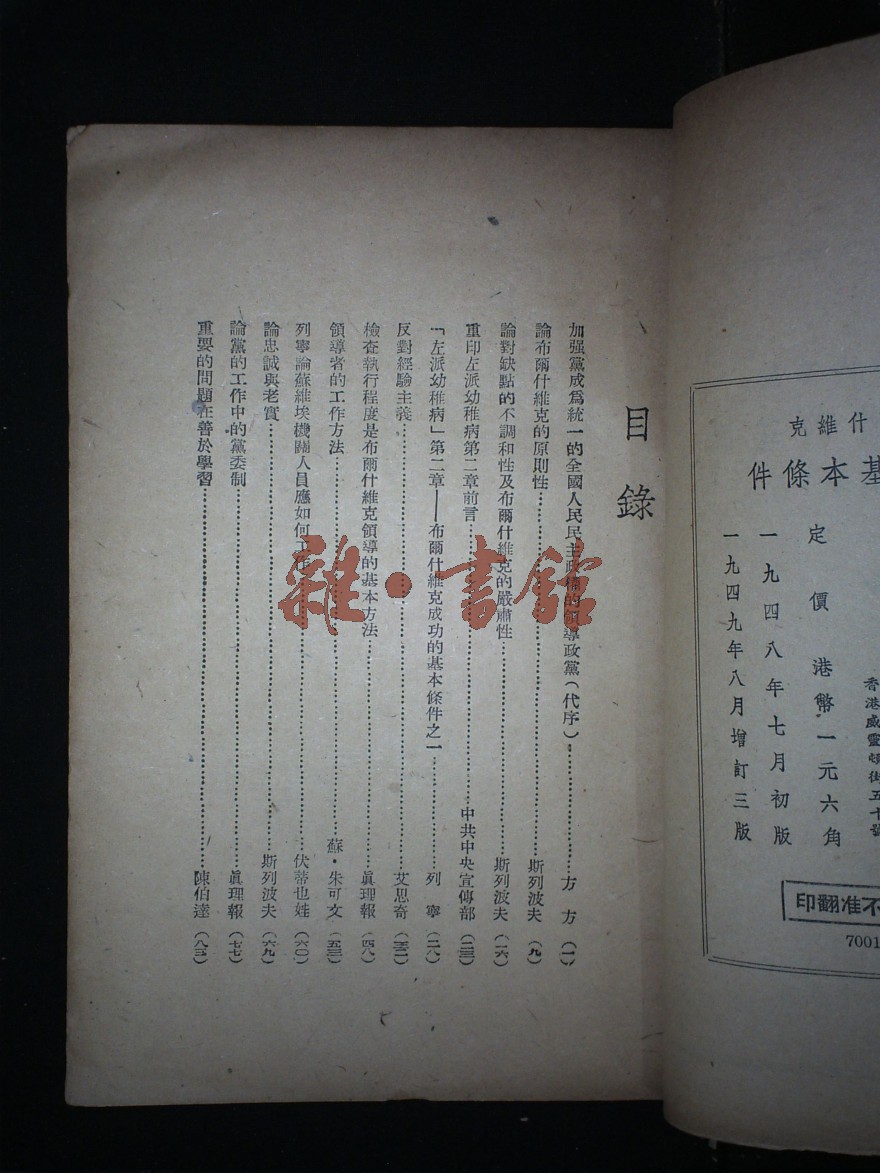 什維克
基本條件
定價港幣一元六角
一九四八年七月初版
一九四九年八月增訂三版
香港威靈頓街五十號
不准翻印
7001
目錄
加强黨成爲統一的全國人民民主政權的領導政黨(代序)……方方(一)
論布爾什維克的原則性……斯列波夫(九)
論對缺點的不調和性及布爾什維克的嚴肅性……斯列波夫(一六)
重印左派幼稚病第二章前言……中共中央宣傳部(二三)
「左派幼稚病」第二章——布爾什維克成功的基本條件之一……列寧(二八)
反對經驗主義……艾思奇(三二)
檢查執行程度是布爾什維克領導的基本方法……眞理報(四八)
領導者的工作方法……蘇·朱可文(五三)
列寧論蘇維埃機關人員應如何工作……伏蒂也娃(六〇)
論忠誠與老實……斯列波夫(六九)
論黨的工作中的黨委制……眞理報(七七)
重要的問題在善於學習……陳伯達(八三)
雜·書館